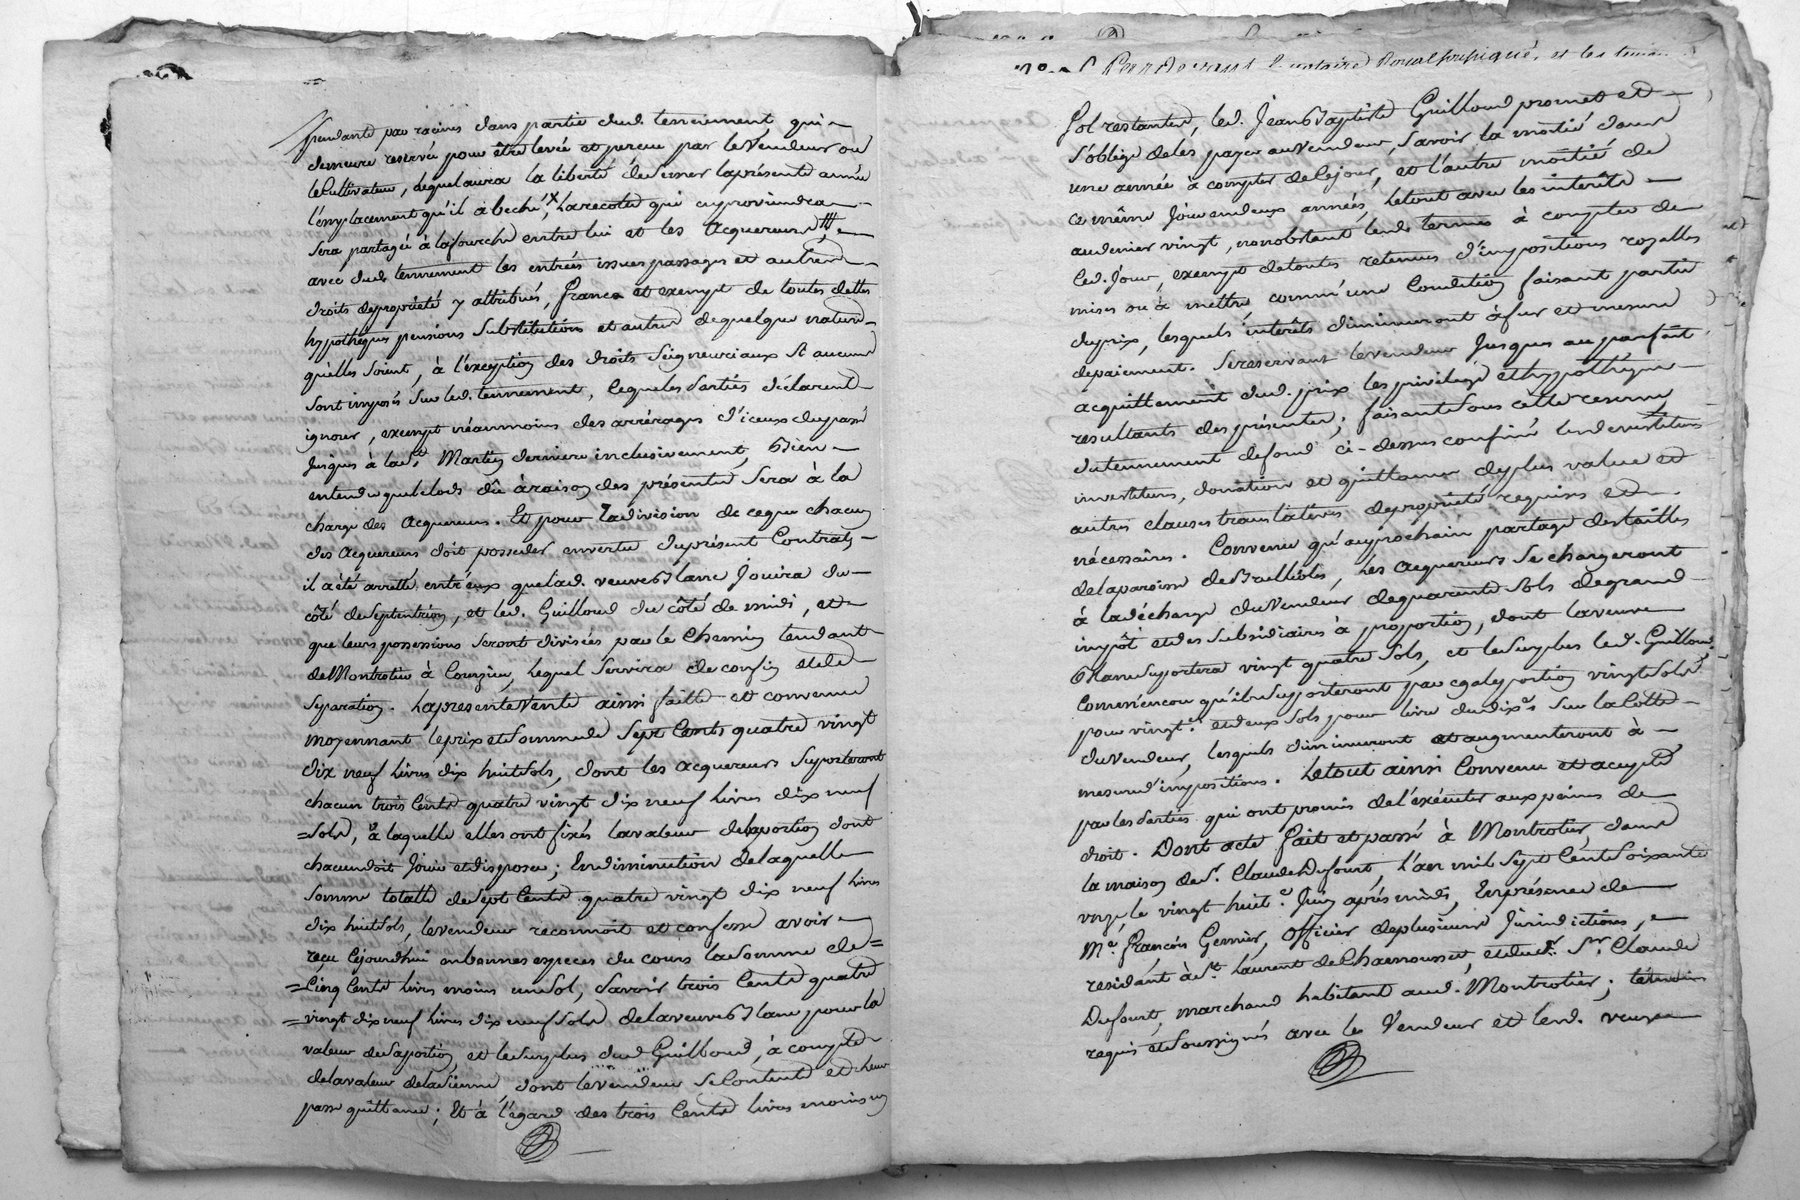 pendante par racines dans partie dud. tennement qui
demeure reservée pour être levée et perçue par le Vendeur ou
le Cultivateur, lequel aura la liberté de semer la présente année
l'emplacement qu'il a beché, la recolte qui en proviendra
sera partagée à la fourche entre lui et les Acquereurs
avec dud. tennement les entrées issues passages et autres
droits de propriété y attribués, franc et exempt de toutes dettes
hypothèques pensions substitutions et autres de quelque nature
qu'elles soient, à l'exception des droits seigneuriaux si aucuns
sont imposés sur led. tennement, lequel les parties déclarent
ignorer, exempt néanmoins des arrérages d'iceux du passé
jusques à la St. Martin derniere inclusivement, Bien
entendu que le lods dû à raison des présentes sera à la
charge des Acquereurs. Et pour la division de ce que chacun
des Acquereurs doit posseder en vertu du présent Contrat,
il a été arretté entr'eux que lad. veuve Blanc Jouira du
côté de septentrion, et led. Guilloud du côté de midi, et
que leurs possessions seront divisées par le Chemin tendant
de Montrotier à Courzieu, lequel servira de confin et de
séparation. La presente Vente ainsi faitte et convenue
moyennant le prix et somme de Sept Cents quatre vingt
dix neuf livres dix huit sols, dont les acquereurs suporteront
chacun trois Cents quatre vingt dix neuf livres dix neuf
sols, à laquelle elles ont fixés la valeur de la portion dont
chacun doit Jouir et disposer; En diminution de laquelle
somme totalle de sept Cents quatre vingt dix neuf livres
dix huit sols, le vendeur reconnoit et confesse avoir
reçu cejourdhui en bonnes especes du cours la somme de
Cinq Cents livres moins un sol, savoir trois Cents quatre
vingt dix neuf livres dix neuf sols de la veuve Blanc pour la
valeur de sa portion, et le surplus dud. Guilloud, à compte
de la valeur de la sienne dont le vendeur se Contente et leur
passe quittance; Et à l'égard des trois Cents livres moins un
Pardevant le notaire Royal soussigné, et les temoins
sol restantes, led. Jean Baptiste Guilloud promet et
s'oblige de les payer au Vendeur, savoir la moitié dans
une année à compter de ce jour, et l'autre moitié de
ce même jour en deux années, le tout avec les interêts
au denier vingt, nonobstant lesd. termes à compter de
ced. Jour, exempt de toutes retenues d'impositions royalles
mises ou à mettre comme une Condition faisant partie
du prix, lesquels interêts diminueront à fur et mesure
de paiement. Se reservant le vendeur jusques au parfait
acquittement dud. prix les privilège et hypothèque
resultants des présentes; faisant sous cette reserve
du tennement de fond ci-dessus confiné les devestitures
investitures, donation et quittance de plus value et
autres clauses translatives de propriété requises et
nécessaires. Convenu qu'au prochain partage des tailles
de la paroisse de Brullioles, les Acquereurs se chargeront
à la décharge du Vendeur de quarante sols de grand
impôt et des subsidiaires à proportion, dont la veuve
Blanc suportera vingt quatre sols, et le surplus led. Guilloud,
Comm'encor qu'ils suporteront par egale portion vingt sols
pour vingt.e et deux sols pour livre du dix.e sur la Cotte
du Vendeur, lesquels diminueront et augmenteront à
mesure d'impositions. Le tout ainsi Convenu et accepté
par les Parties qui ont promis de l'exécuter aux peines de
droit. Dont acte fait et passé à Montrotier, dans
la maison de Sr. Claude Dufourt, l'an mil sept Cent soixante
onze, le vingt huit.e Juin après midi, En présence de
Me. François Gernier, Officier de plusieurs Jurisdictions,
residant à St. Laurent de Chamousset, et dud. Sr. Claude
Dufourt, marchand habitant aud. Montrotier; témoins
requis et soussignés avec le Vendeur et lesd. veuve